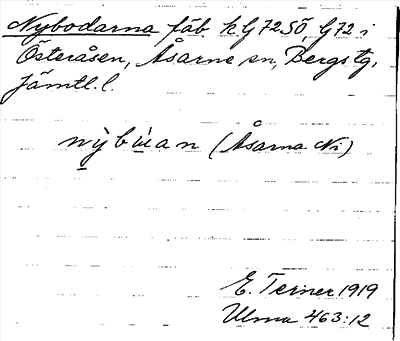 Nybodarna fäb. kG72SÖ, G72 i
Österåsen, Åsarne sn, Bergs tg,
Jämtl. l.
nỳbu̇an (Åsarna Ni)
E. Terner 1919
Ulma 463:12